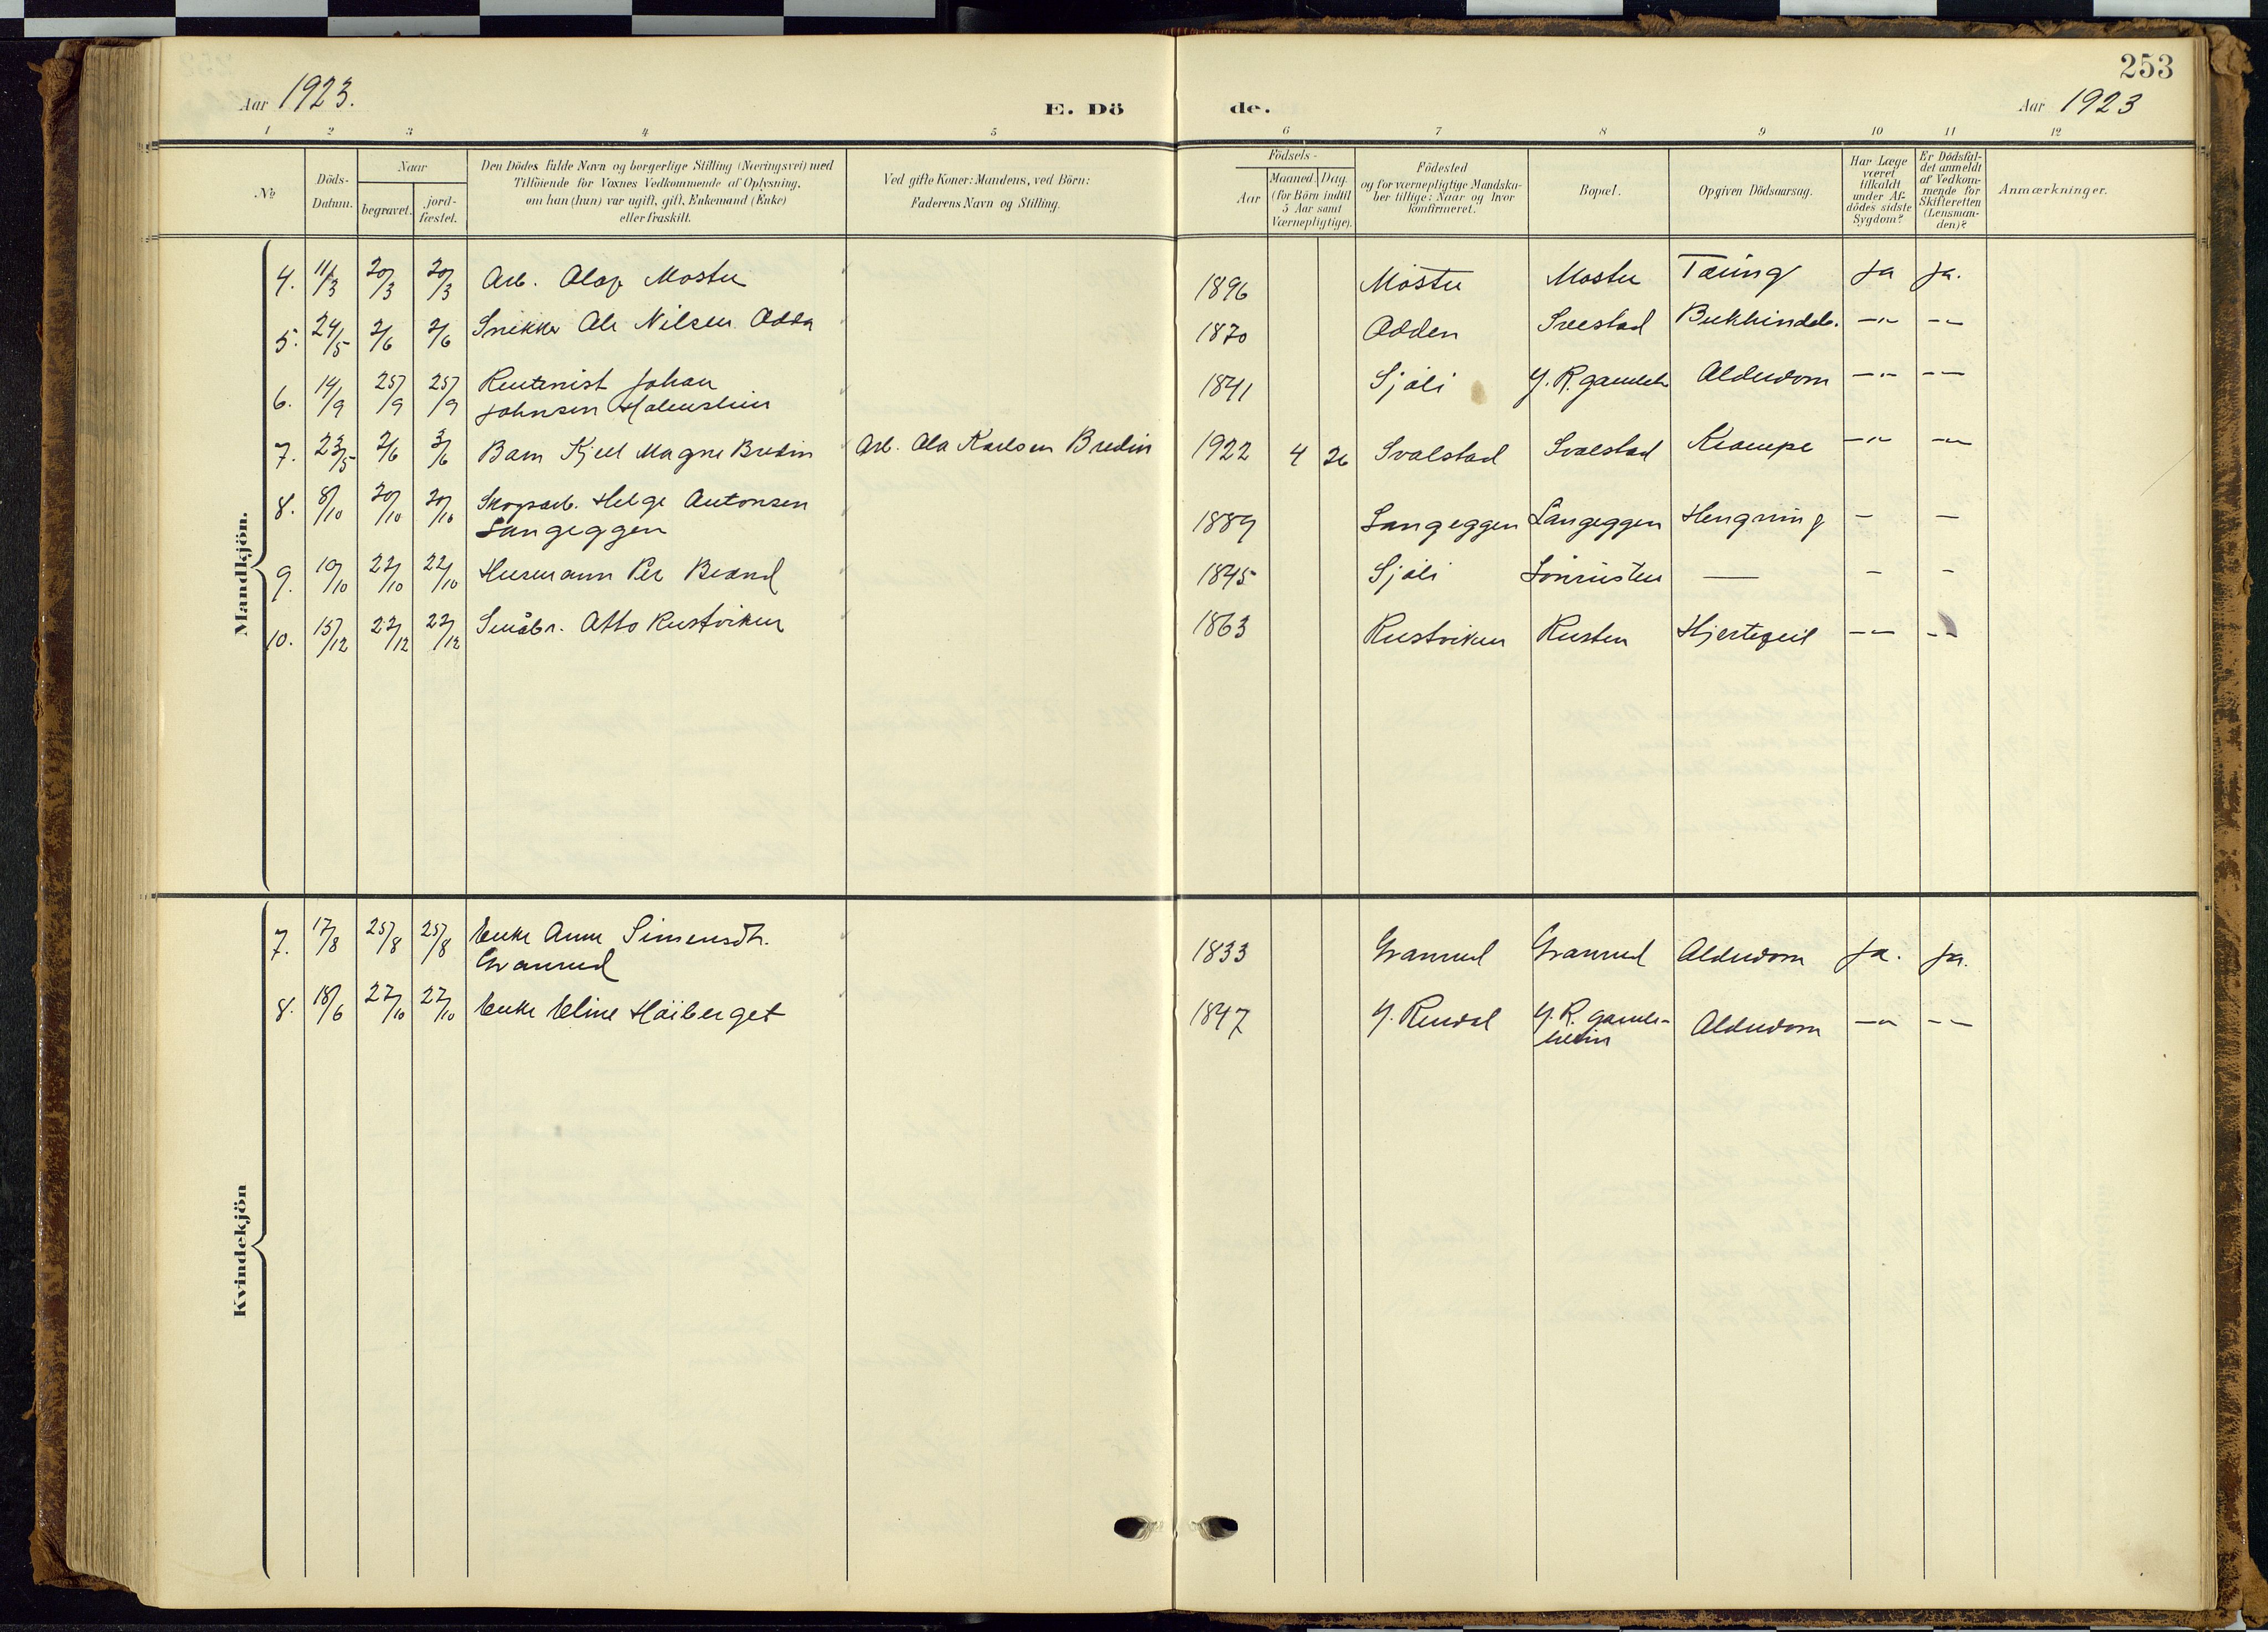 253
Aar 1923.
E. Dö de.
Aar 1923
1 2 3 4 5 6 7 8 9 10 11 12
No
Döds-
Datum.
Naar
begravet.
jord-
fæstet.
Den Dödes fulde Navn og borgerlige Stilling (Næringsvei) med
Tilföiende for Voxnes Vedkommende af Oplysning,
om han (hun) var ugift, gift, Enkemand (Enke)
eller fraskilt.
Ved gifte Koner: Mandens, ved Börn:
Faderens Navn og Stilling.
Födsels-
Aar
Maaned. Dag.
(for Börn indtil
5 Aar samt
Værnepligtige).
Födested
og for værnepligtige Mandska-
ber tillige: Naar og hvor
konfirmeret.
Bopæl.
Opgiven Dödsaarsag.
Har Læge
været
tilkaldt
under Af-
dödes sidste
Sygdom?
Er Dödsfal-
det anmeldt
af Vedkom-
mende for
Skifteretten
(Lensman-
den)?
Anmærkninger.
Mandkjön.
4. 11/3 20/3 20/3 Arb. Olaf Mostu 1896 Mostu Mostu Tæring ja ja.
5. 24/5 2/6 2/6 Snikker Ole Nilsen Odda 1870 Odden Svestad Bukhindeb. -"- -"-
6. 14/9 25/9 25/9 Rentenist Johan
Johnsen Holmstein 1841 Sjøli Y. R. gamleh Alderdom -"- -"-
7. 23/5 2/6 3/6 Barn Kjell Magne Bredin Arb. Ola Karlsen Bredin 1922 4 26 Svalstad Svalstad Krampe -"- -"-
8. 8/10 20/10 20/10 Skogsarb. Helge Antonsen
Langeggen 1889 Langeggen Langeggen Hengning - -
9. 10/10 22/10 22/10 Husmann Per Brænd 1845 Sjøli Lönrusten — - -
10. 15/12 22/12 22/12 Småbr. Otto Rustviken 1863 Rustviken Rusten Hjertefeil -"- -"-
Kvindekjön
7. 17/8 25/8 25/8 Enke Anne Simensdtr.
Granrud 1833 Granrud Granrud Alderdom ja. ja.
8. 18/6 27/10 27/10 Enke Eline Høiberget 1847 Y. Rendal Y. R. gamle-
heim Alderdom -"- -"-